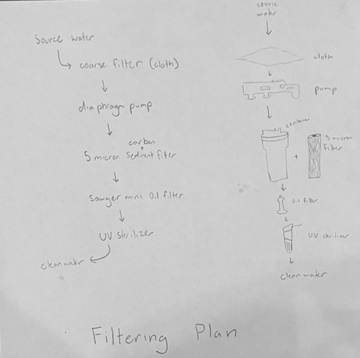 Source water
coarse filter (cloth)
diaphragm pump
carbon
5 micron Sediment filter
Sawyer mini 0.1 filter
UV Sterilizer
clean water
source
water
cloth
pump
container
+
5 micron
filter
0.1 filter
UV sterilizer
clean water
Filtering Plan